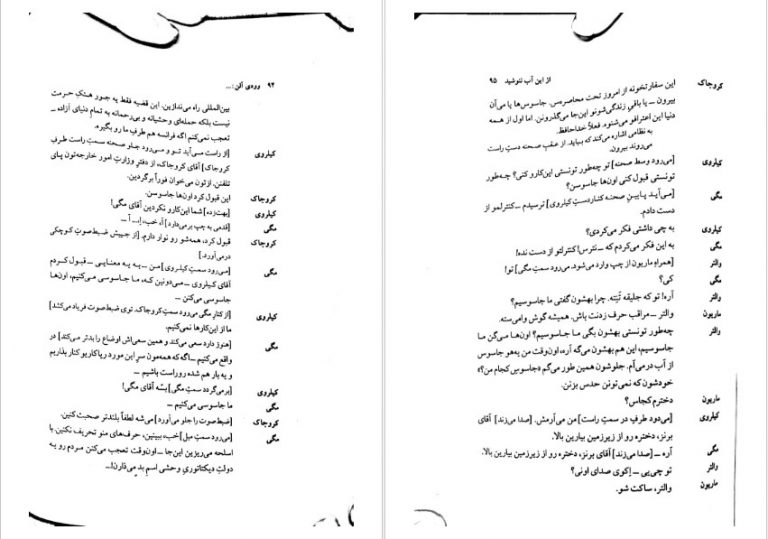 ۹۴ وودی آلن: ...
بین‌المللی راه می‌ندازین. این قضیه فقط یه جور هتکِ حرمت
نیست بلکه حمله‌ای وحشیانه و بی‌رحمانه به تمام دنیای آزاده ـ
تعجب نمی‌کنم اگه فرانسه هم طرفِ ما رو بگیره.
کیلروی [از راست مـی‌آید تـو و می‌رود جـلو صحنه سمتِ راست طـرفِ
کروجاک] آقای کروجاک، از دفترِ وزارتِ امور خارجه‌تون پـای
تلفنن. ازتون می‌خوان فوراً برگردین.
کروجاک این قبول کرد اون‌ها جاسوسن.
کیلروی [بهت‌زده] شما این‌کارو نکردین آقای مگی!
مگی [قدمی به چپ برمی‌دارد] آ، خب، اِ... آ ...
کروجاک قبول کرد، همه‌شو رو نوار دارم. [از جیبش ضبط‌صوتِ کوچکی
درمی‌آورد.]
مگی [می‌رود سمتِ کیلـروی] مـن ـ بـه یـه معنایـی ـ قبـول کـردم
آقای کیلروی ـ می‌دونین کـه، مـا جاسوسی مـی‌کنیم، اون‌هـا
جاسوسی می‌کنن ـ
کیلروی [از کنارِ مگی می‌رود سمتِ کروجاک. توی ضبط‌صوت فریاد می‌کشد]
ما از این‌کارها نمی‌کنیم.
مگی [هنوز دارد سعی می‌کند و همین سعی‌اش اوضاع را بدتر می‌کند] در
واقع می‌کنیم ـ اگه که همه‌مون سرِ این مورد ریاکاریو کنار بذاریم
و یه بار هم شده روراست باشیم ـ
کیلروی [برمی‌گردد سمتِ مگی] بسّه آقای مگی!
مگی ما جاسوسی می‌کنیم ـ
کروجاک [ضبط‌صوت را جلو می‌آورد] می‌شه لطفاً بلندتر صحبت کنین.
مگی [می‌رود سمتِ مبل] خب، ببینین، حرف‌های منو تحریف نکنین با
اسلحه می‌ریزین این‌جا ـ اون‌وقت تعجب می‌کنن مـردم رو یـه
دولتِ دیکتاتوریِ وحشی اسمِ بد می‌ذارن!...
از این آب ننوشید ۹۵
کروجاک این سفارتخونه از امروز تحت محاصره‌س. جاسوس‌ها یا می‌آن
بیرون ـ یا باقیِ زندگی‌شونو این‌جا می‌گذرونن. اما اول از همه
دنیا این اعترافو می‌شنوه. فعلاً خداحافظ.
به نظامی اشاره می‌کند که بیاید. از عقبِ صحنه دستِ راست
می‌روند بیرون.
کیلروی [می‌رود وسط صحنه] تو چه‌طور تونستی این‌کارو کنی؟ چـه‌طور
تونستی قبول کنی اون‌ها جاسوسن؟
مگی [مـی‌آیـد پـایـینِ صحنـه کنـاردستِ کیلـروی] ترسیدم ـ کنترلمو از
دست دادم.
کیلروی به چی داشتی فکر می‌کردی؟
مگی به این فکر می‌کردم که ـ نترس! کنترلتو از دست نده!
والتر [همراهِ ماریون از چپ وارد می‌شود. می‌رود سمتِ مگی] تو!
مگی کی؟
والتر آره! تو که جلیقه تَنِته. چرا بهشون گفتی ما جاسوسیم؟
ماریون والتر ـ مراقب حرف زدنت باش. همیشه گوش وامی‌سته.
والتر چه‌طور تونستی بهشون بگی مـا جـاسوسیم؟ اون‌هـا مـی‌گن ما
جاسوسیم، این هم بهشون می‌گه آره، اون‌وقت من یه‌هو جاسوس
از آب درمی‌آم. جلوشون همین طور می‌گم «جاسوسِ کجام من؟»
خودشون که نمی‌تونن حدس بزنن.
ماریون دخترم کجاس؟
کیلروی [می‌دود طرفِ در سمتِ راست] من می‌آرمش. [صدا می‌زند] آقای
برنز، دختره رو از زیرزمین بیارین بالا.
مگی آره ـ [صدا می‌زند] آقای برنز، دختره رو از زیرزمین بیارین بالا.
والتر تو چی‌یی ـ اِکوی صدای اونی؟
ماریون والتر، ساکت شو.